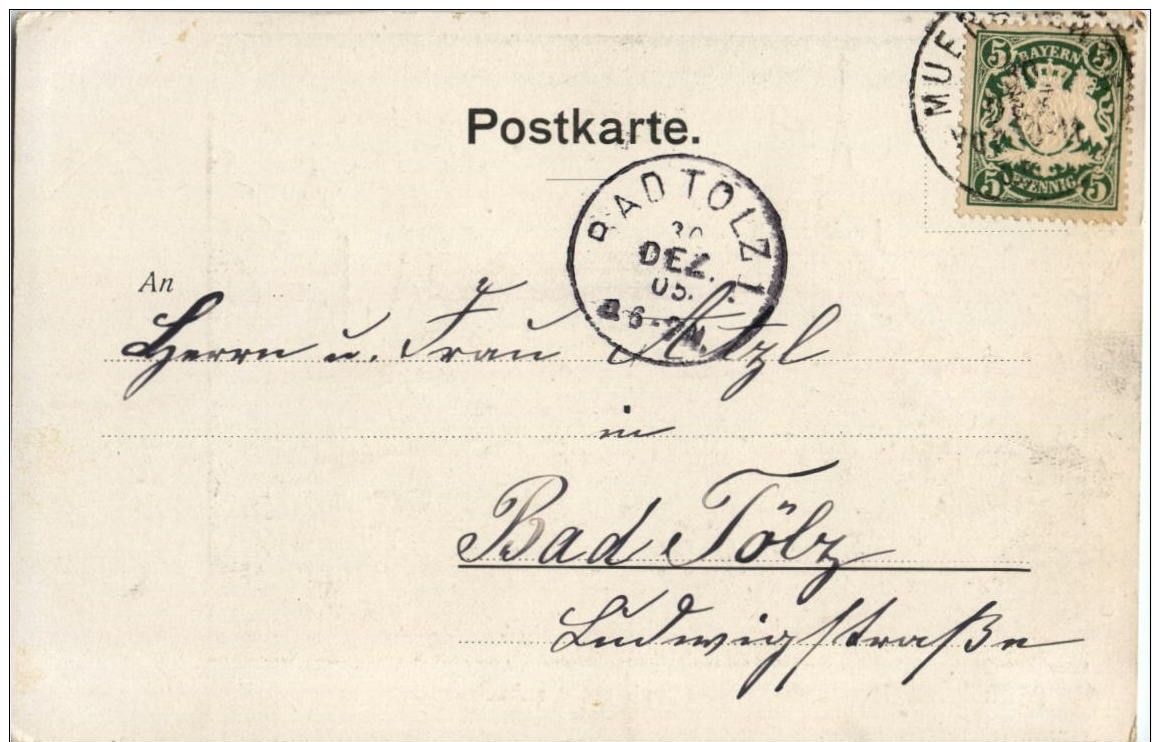 Postkarte.
5 BAYERN 5
5 PFENNIG 5
BAD TÖLZ I.
30
DEZ.
05.
An
Herrn u. Frau
in
Bad Tölz
Ludwigstraße